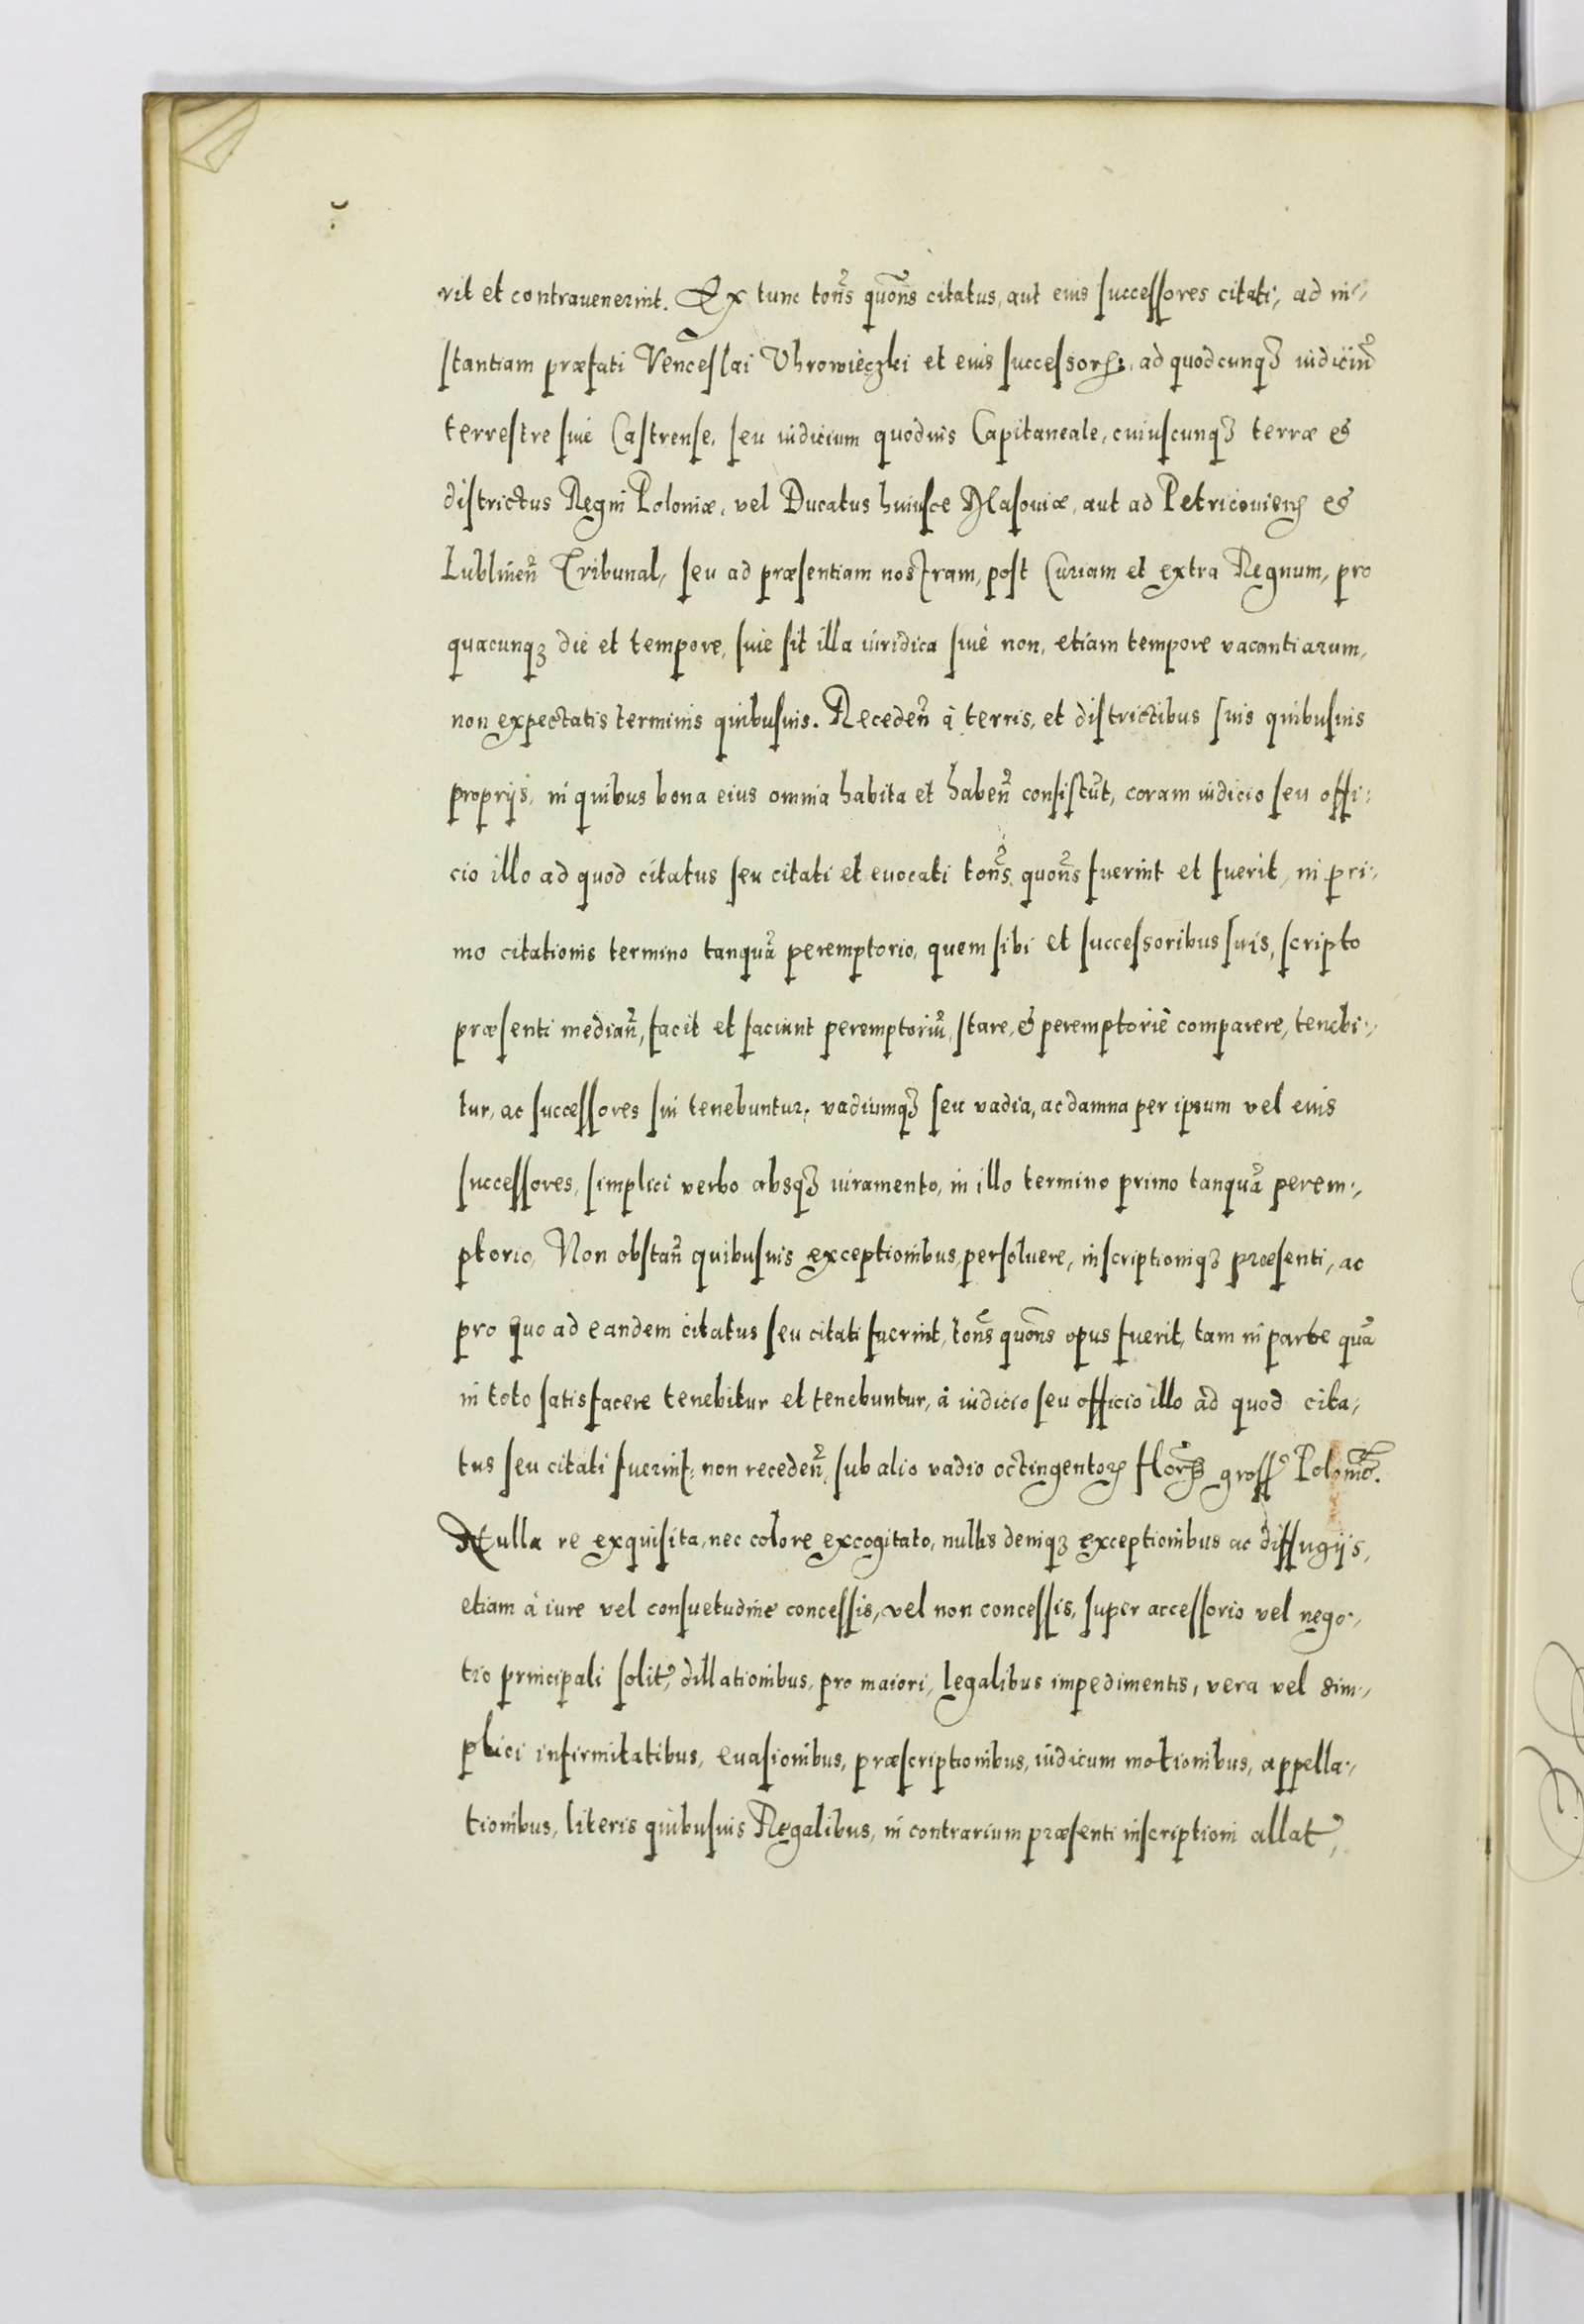 rit et contrauenerint. Ex tunc tōns quōns citatus, aut eius successores citati, ad in-
stantiam præfati Venceslai Vhrowieczki et eius successorꝝ, ad quodcunqꝫ iudiciū
terrestre siue Castrense, seu iudicium quoduis Capitaneale, cuiuscunqꝫ terræ &
districtus Regni Poloniæ, vel Ducatus huiusce Masouiæ, aut ad Petricouieñ &
Lublineñ Tribunal, seu ad præsentiam nostram, post Curiam et extra Regnum, pro
quacunqꝫ die et tempore, siue sit illa iuridica siuè non, etiam tempore vacantiarum,
non expectatis terminis quibusuis. Recedeñ à terris, et districtibus suis quibusuis
proprijs, in quibus bona eius omnia habita et habeñ consistūt, coram iudicio seu offi-
cio illo ad quod citatus seu citati et euocati tōns quōns fuerint et fuerit, in pri-
mo citationis termino tanquā peremptorio, quem sibi et successoribus suis, scripto
præsenti mediañ, facit et faciunt peremptoriū, stare, & peremptoriè comparere, tenebi-
tur, ac successores sui tenebuntur, vadiumqꝫ seu vadia, ac damna per ipsum vel eius
successores, simplici verbo absqꝫ iuramento, in illo termino primo tanquā perem-
ptorio, Non obstañ quibusuis exceptionibus, persoluere, inscriptioniqꝫ præsenti, ac
pro quo ad eandem citatus seu citati fuerint, tōns quōns opus fuerit, tam in parte quā
in toto satisfacere tenebitur et tenebuntur, à iudicio seu officio illo ad quod cita-
tus seu citati fuerint, non recedeñ, sub alio vadio octingentorꝝ florꝝ gross Polonic.
Nulla re exquisita, nec colore excogitato, nullis deniqꝫ exceptionibus ac diffugijs,
etiam à iure vel consuetudine concessis, vel non concessis, super accessorio vel nego-
tio principali solit, dillationibus, pro maiori, legalibus impedimentis, vera vel sim-
plici infirmitatibus, euasionibus, præscriptionibus, iudicum motionibus, appella-
tionibus, literis quibusuis Regalibus, in contrarium præsenti inscriptioni allat,